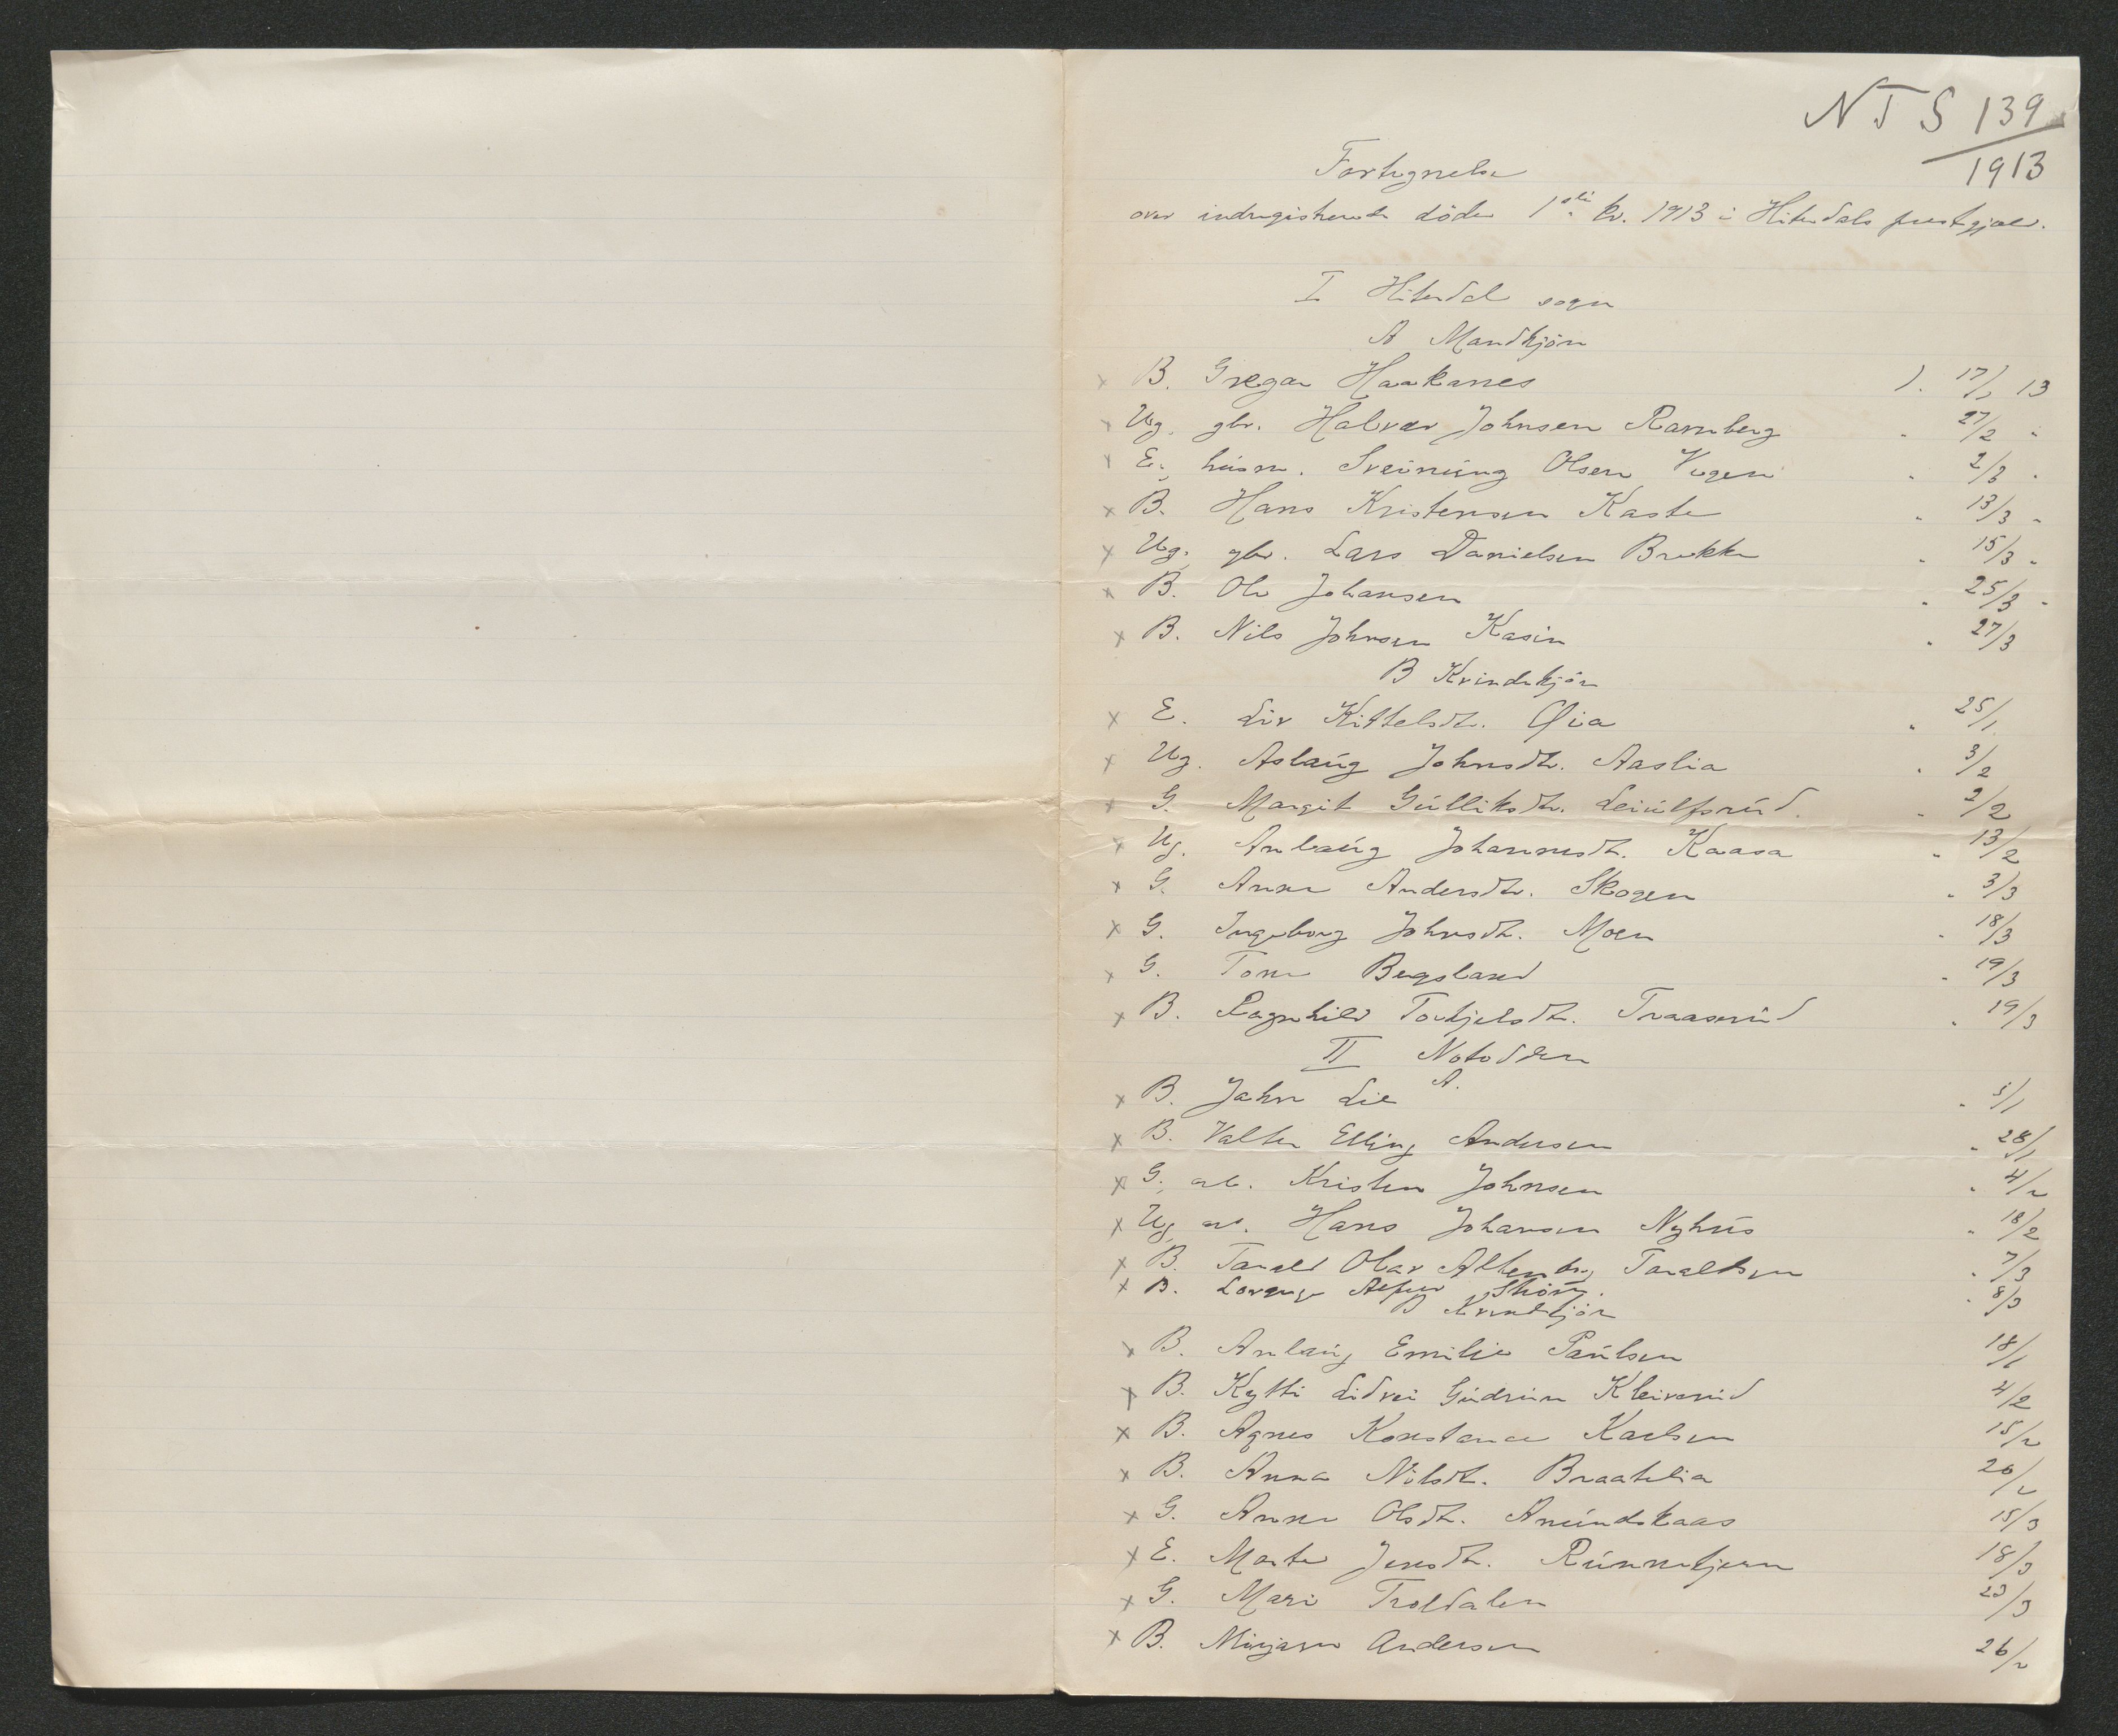 NTS 139
1913
Fortegnelse
over indregistrerede döde 1ste kv. 1913 i Hiterdals prestegjæld.
I Hiterdal sogn
A Mandkjön
B. Gregar Haakanes ). 17/1 13
Ug. gbr. Halvor Johnsen Ramberg " 27/2 "
E., husm. Sveinung Olsen Vegen " 2/3 "
B. Hans Kristensen Kaste " 13/3 "
Ug. gbr. Lars Danielsen Brekke " 15/3 "
B. Olv Johansen " 25/3 "
B. Nils Johnsen Kasin " 27/3
B Kvindekjön
E. Liv Kittelsdt. Øia " 25/1
Ug. Aslaug Johnsdt. Aaslia " 3/2
G. Margit Gulliksdt. Leiulfsrud. " 2/2
Ug. Anlaug Johannesdt. Kaasa " 13/2
G. Anne Andersdt. Skogen " 3/3
G. Ingeborg Johnsdt. Moen " 18/3
G. Tone Bergsland " 19/3
B. Ragnhild Torkjelsdt. Traaserud " 19/3
II Notodden
A.
B. John Lie " 5/1
B. Valter Elling Andersen " 28/1
G., arb. Kristen Johnsen " 4/2
Ug. arb. Hans Johansen Nyhus " 18/2
B. Tarald Olav Altenby Taraldsen " 7/3
B. Skön. " 8/3
B Kvindekjön
B. Anlaug Emilie Paulsen 18/1
B. Kytti Lidvei Gudrun Kleiverud 4/2
B. Agnes Konstance Karlsen 15/2
B. Anna Nilsdt. Braatelia 20/2
G. Anne Olsdt. Amundskaas 15/3
E. Marte Jensdt. Runnetjern 18/3
G. Mari Troldalen 23/3
B. Mirjam Andersen 26/2